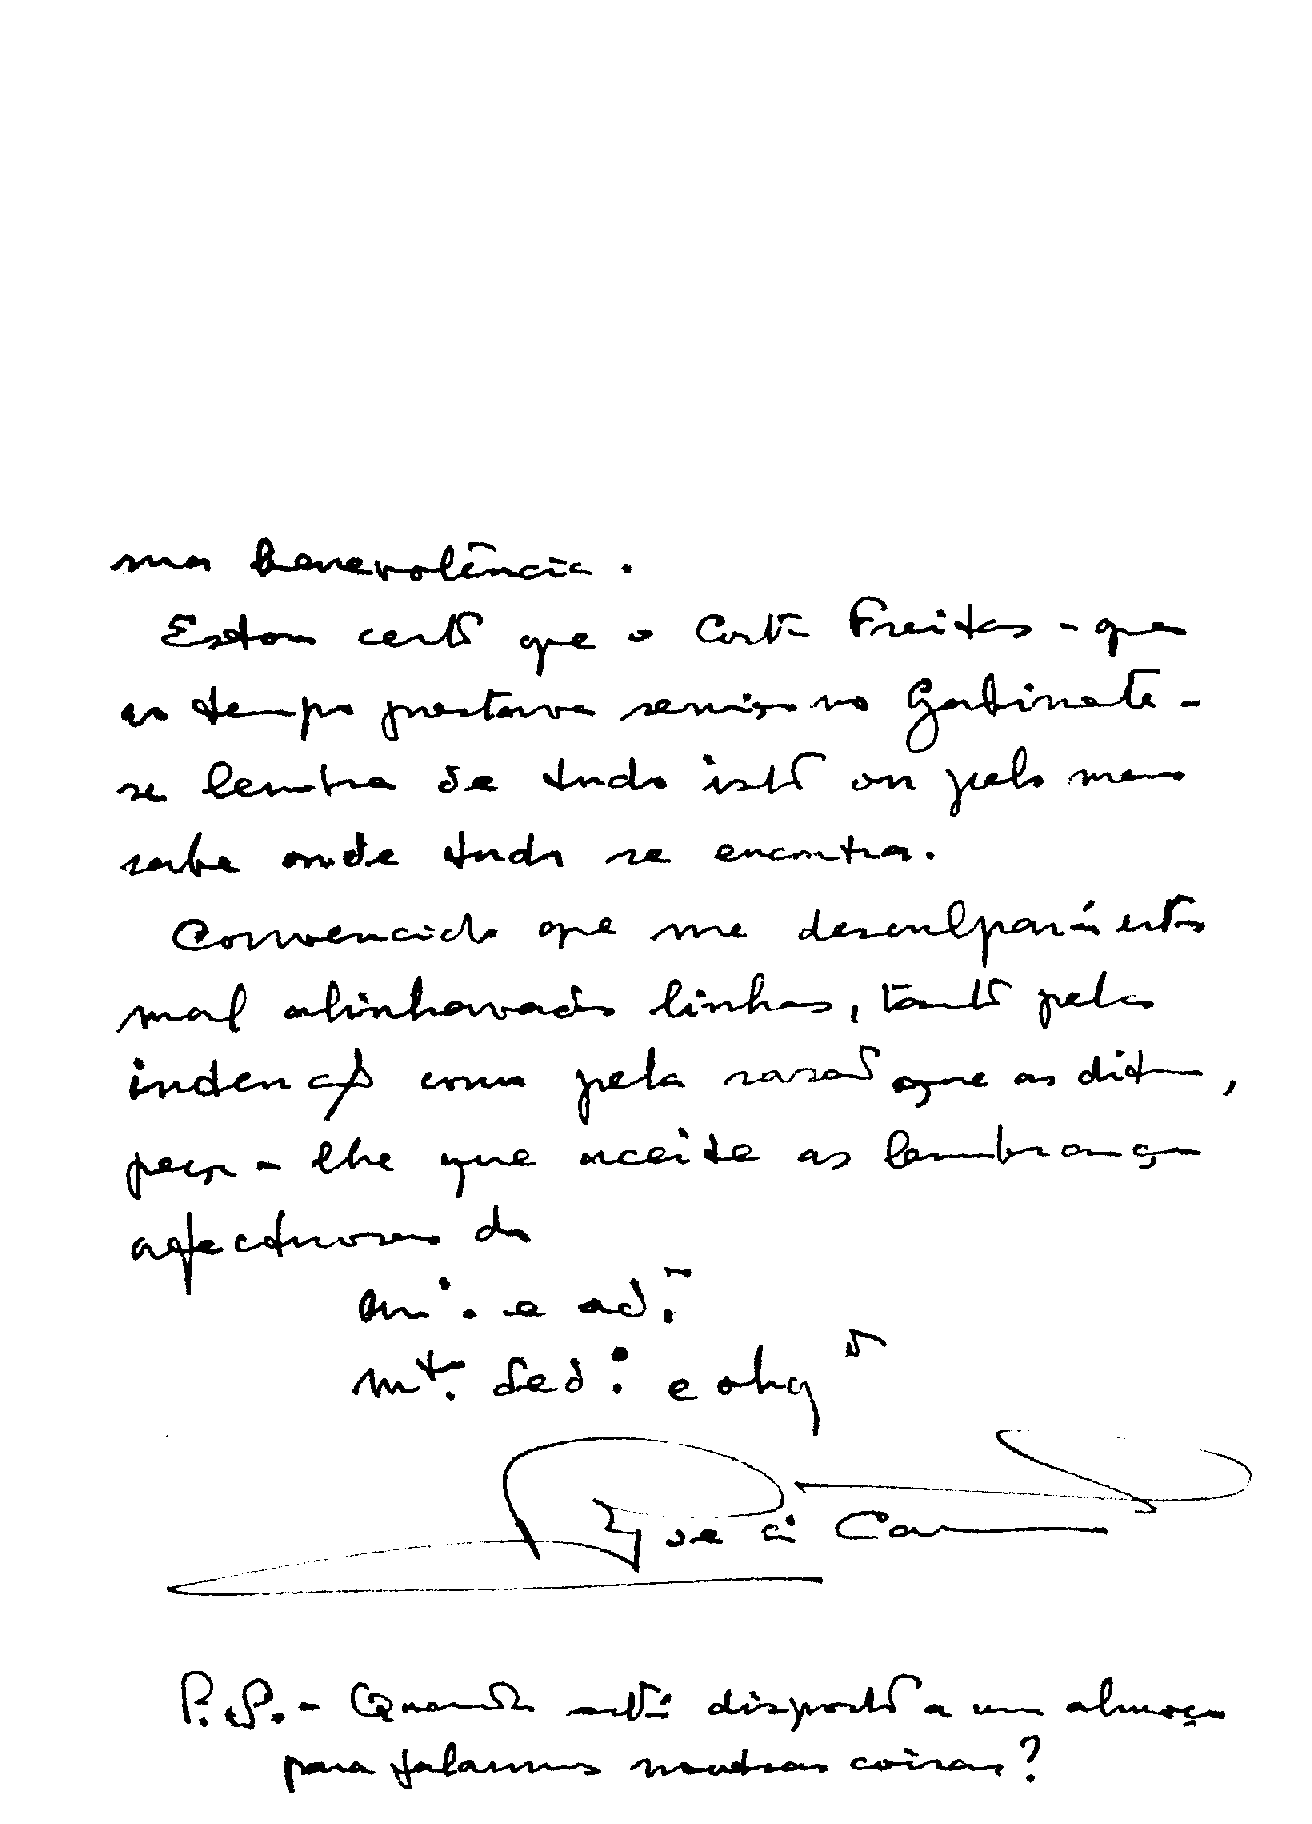 sua benevolência.
Estou certo que o Corte Freitas - que
ao tempo prestava serviço no Gabinete -
se lembra de tudo isto ou pelo menos
sabe onde tudo se encontra.
Convencido que me desculpará estas
mal alinhavadas linhas, tanto pela
como pela razão que as dita,
peço-lhe que aceite as lembranças
afectuosas do
am.º e ad.
m.to ded.º e obgº
P.S. - Quando está disposto a um almoço
para falarmos noutras coisas?